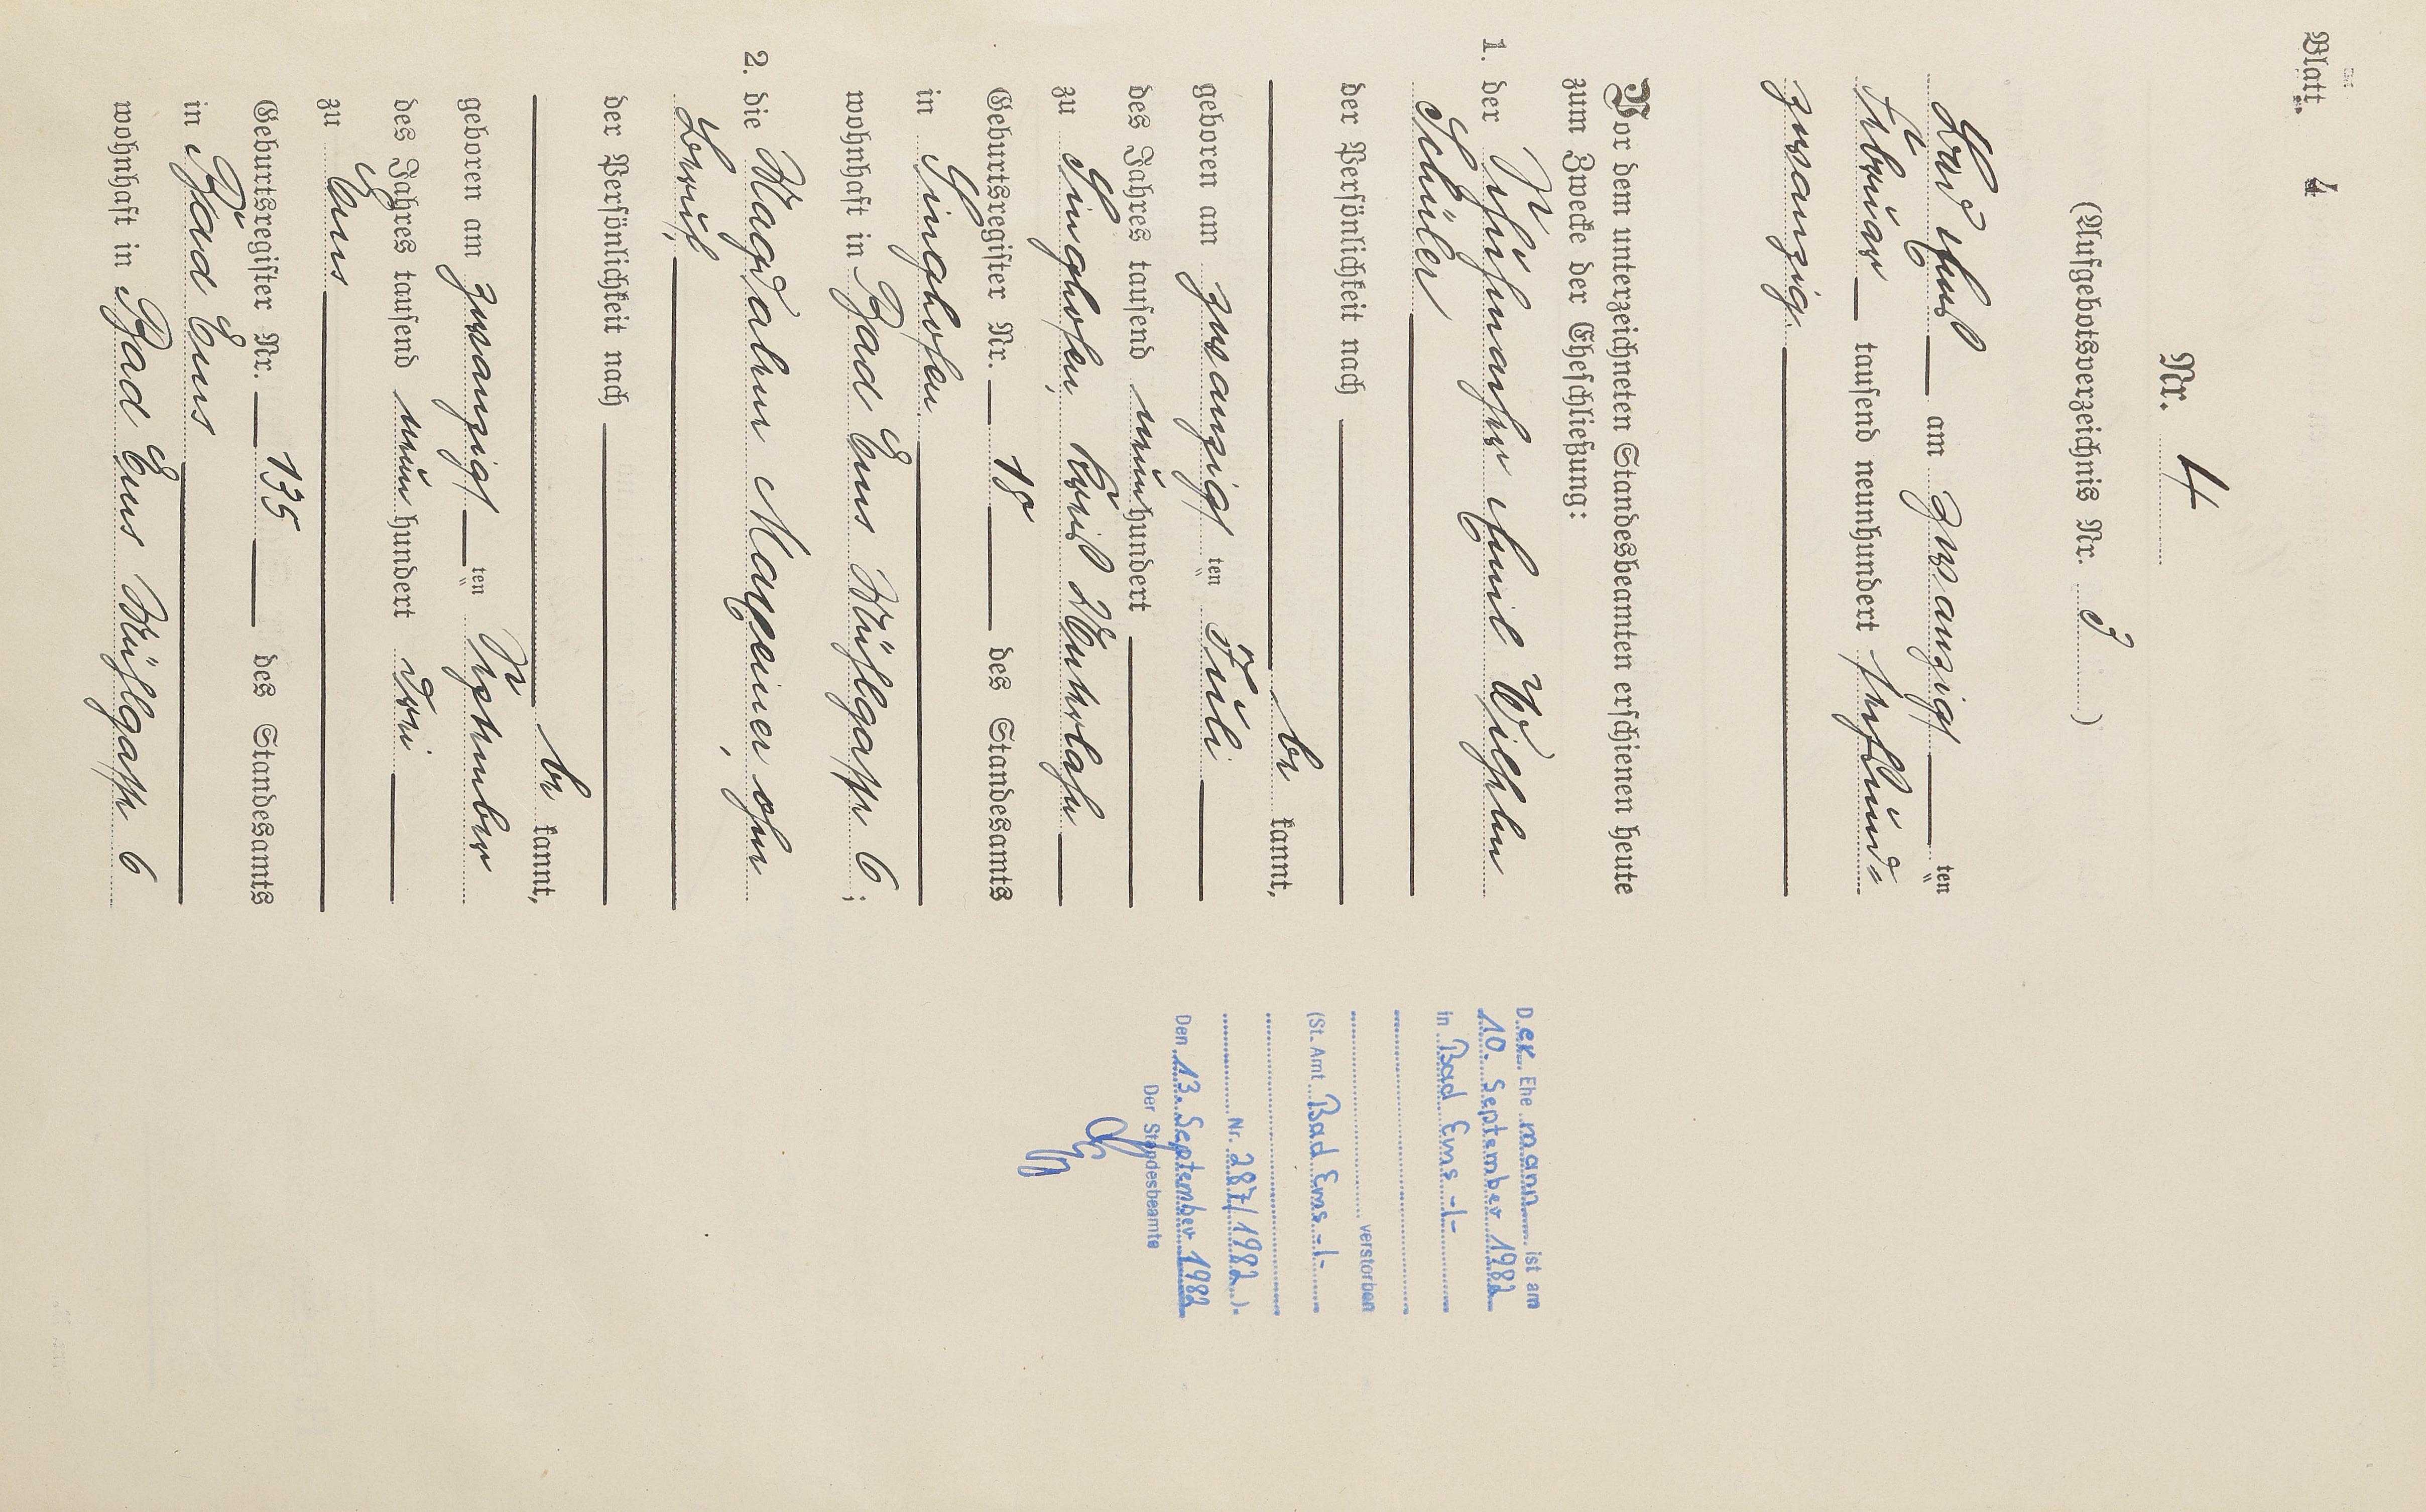 Blatt 4
Nr. 4
(Aufgebotsverzeichnis Nr. 3)
Bad Ems am zwanzigs ten
Februar tausend neunhundert sechsund=
zwanzig.
Vor dem unterzeichneten Standesbeamten erschienen heute
zum Zwecke der Eheschließung:
1. der Emil Wilhelm
Schüler
der Persönlichkeit nach
be kannt,
geboren am zwanzigs ten Juli
des Jahres tausend neun hundert
zu Singhofen, Kreis Unterlahn
Geburtsregister Nr. 18 des Standesamts
in Singhofen
wohnhaft in Bad Ems 6;
2. die ohne
Beruf,
der Persönlichkeit nach
be kannt,
geboren am zwanzigs ten September
des Jahres tausend neun hundert drei
zu Ems
Geburtsregister Nr. 135 des Standesamts
in Bad Ems
wohnhaft in Bad Ems 6
Der Ehemann ist am
10. September 1982
in Bad Ems -1-
verstorben
(St. Amt Bad Ems -1-
Nr. 287/1982).
Den 13. September 1982
Der Standesbeamte